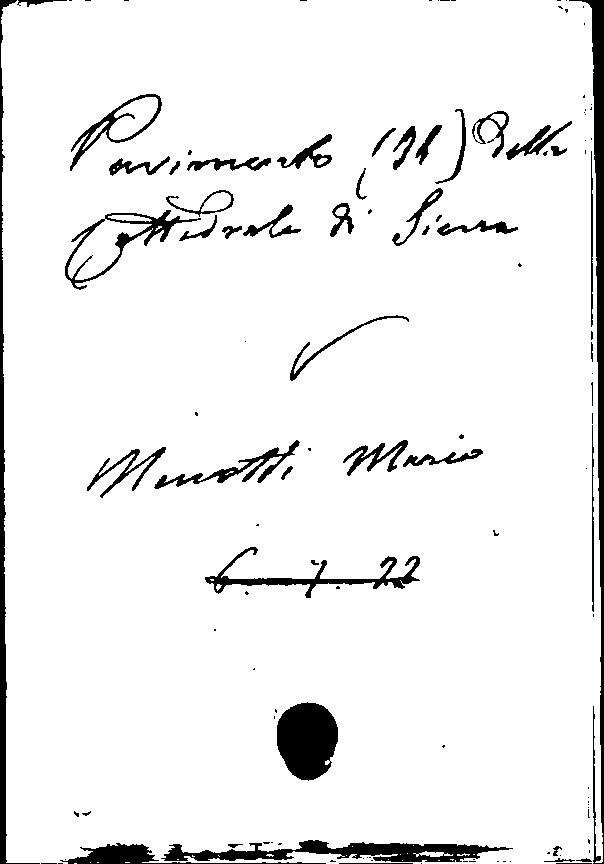 Pavimento (Il) della
Cattedrale di Siena
Menotti Mario
6. 7. 22